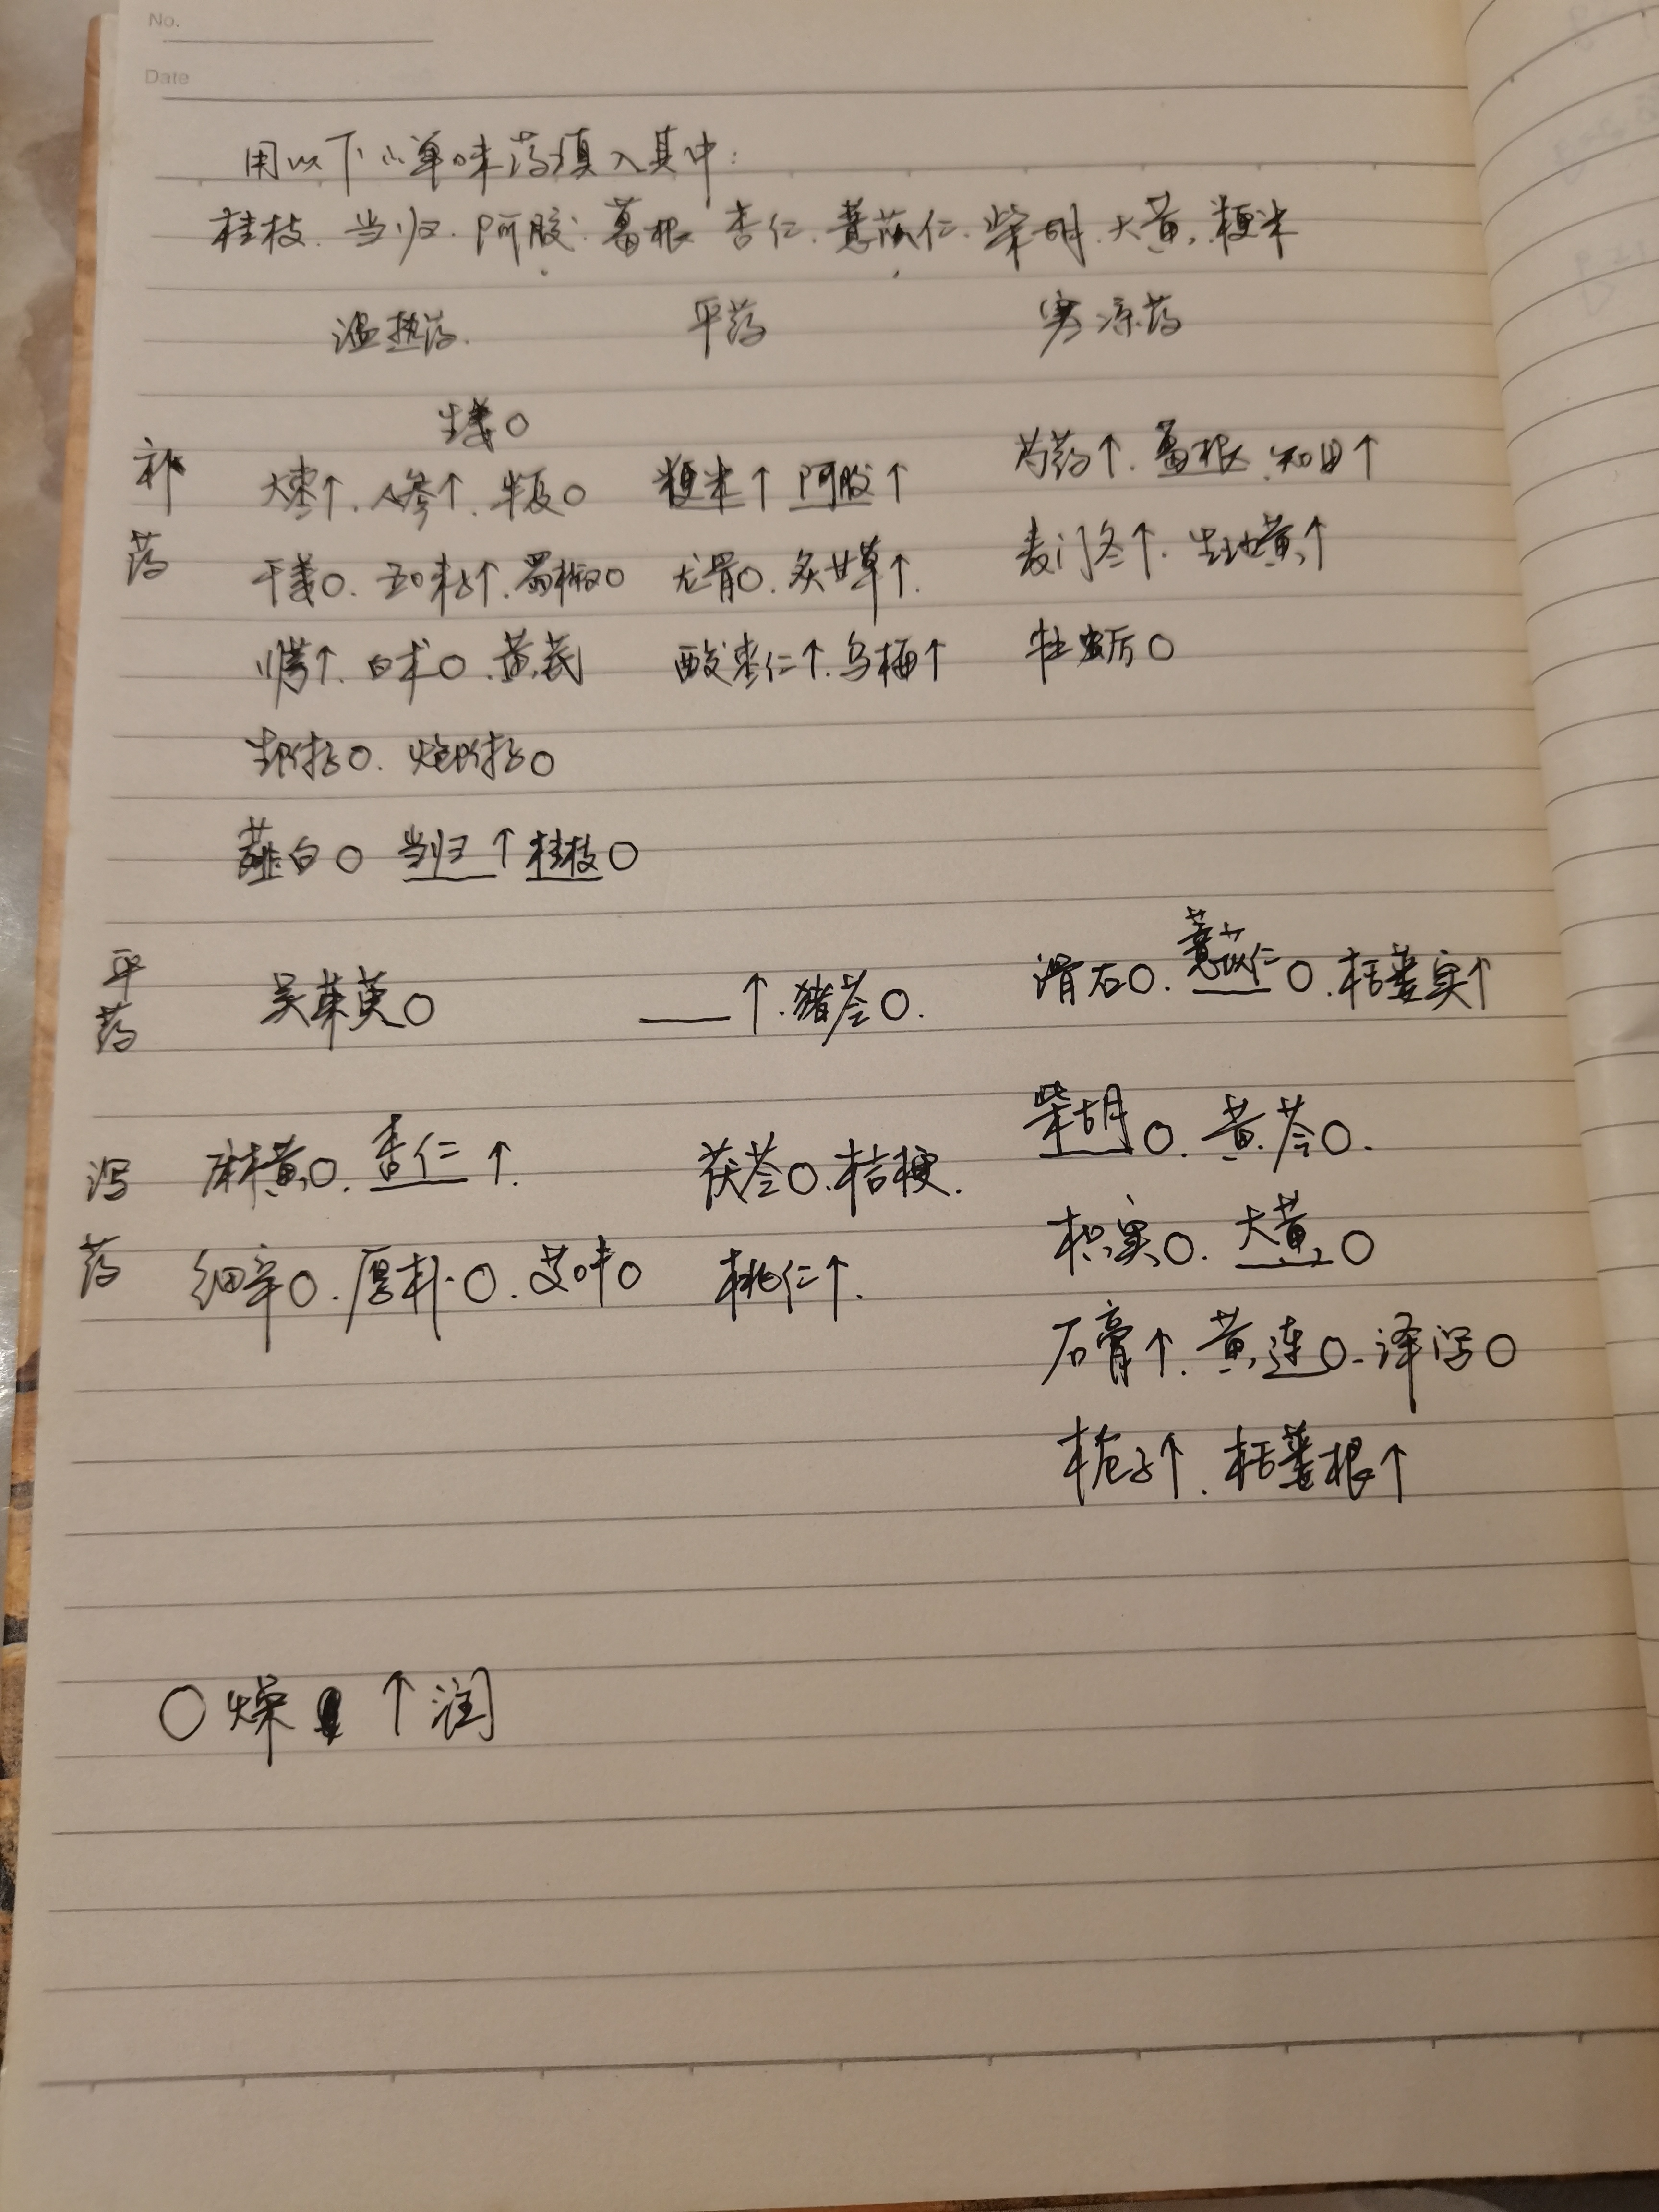 No.
Date
用以下小单味药填入其中:
桂枝. 当归. 阿胶. 葛根 杏仁. 薏苡仁. 柴胡. 大黄. 粳米
温热药. 平药 寒凉药
生姜○
补药
大枣↑. 人参↑. 半夏○ 粳米↑ 阿胶↑ 芍药↑. 葛根. 知母↑
干姜○. 五味子↑. 蜀椒○ 龙骨○. 炙甘草↑. 麦门冬↑. 生地黄↑
川芎↑. 白术○. 黄芪 酸枣仁↑. 乌梅↑ 牡蛎○
生附子○. 炮附子○
薤白○ 当归↑ 桂枝○
平药
吴茱萸○ ___↑. 猪苓○. 滑石○. 薏苡仁○. 栝蒌实↑
泻药
麻黄○. 杏仁↑. 茯苓○. 桔梗. 柴胡○. 黄芩○.
细辛○. 厚朴○. 艾叶○ 桃仁↑. 枳实○. 大黄○
石膏↑. 黄连○. 泽泻○
栀子↑. 栝蒌根↑
○燥 ↑润